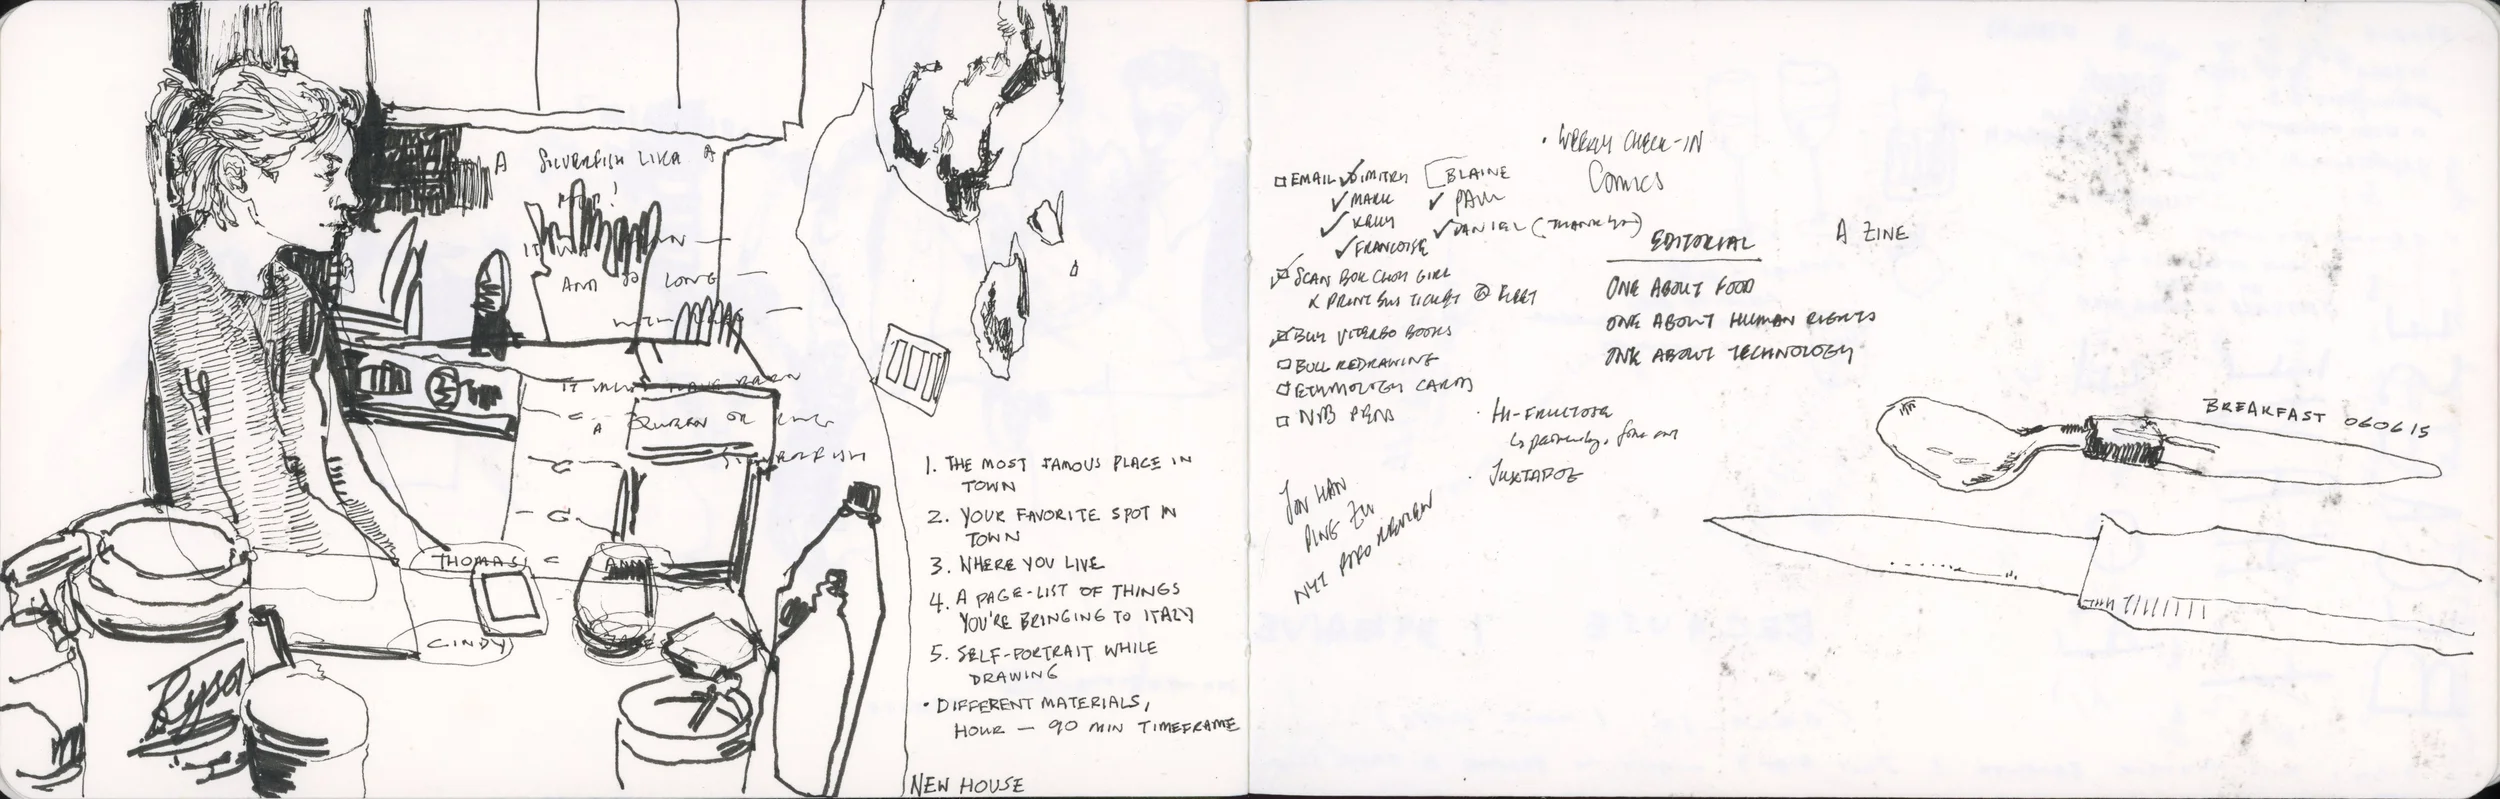 A SILVERFISH LIKE A
AND SO LONG
IT MUST HAVE BEEN
A QUEEN OR KING
SILVERFISH
THOMAS
ANNE
CINDY
Ryso
1. THE MOST FAMOUS PLACE IN
TOWN
2. YOUR FAVORITE SPOT IN
TOWN
3. WHERE YOU LIVE
4. A PAGE-LIST OF THINGS
YOU'RE BRINGING TO ITALY
5. SELF-PORTRAIT WHILE
DRAWING
• DIFFERENT MATERIALS,
HOUR — 90 MIN TIMEFRAME
NEW HOUSE
• WEEKLY CHECK-IN
COMICS
EMAIL DIMITRY
BLAINE
MARK
PAM
KELLY
DANIEL (THANK YOU)
FRANCOISE
SCAN BOK CHOY GIRL
& PRINT BUS TICKET @
BUY VITERBO BOOKS
BULL REDRAWING
ETYMOLOGY CARDS
NIB PENS
EDITORIAL
ONE ABOUT FOOD
ONE ABOUT HUMAN RIGHTS
ONE ABOUT TECHNOLOGY
A ZINE
• HI-FRUCTOSE
fine art
• JUXTAPOZ
JON HAN
PING ZHU
NYT REVIEW
BREAKFAST 060615